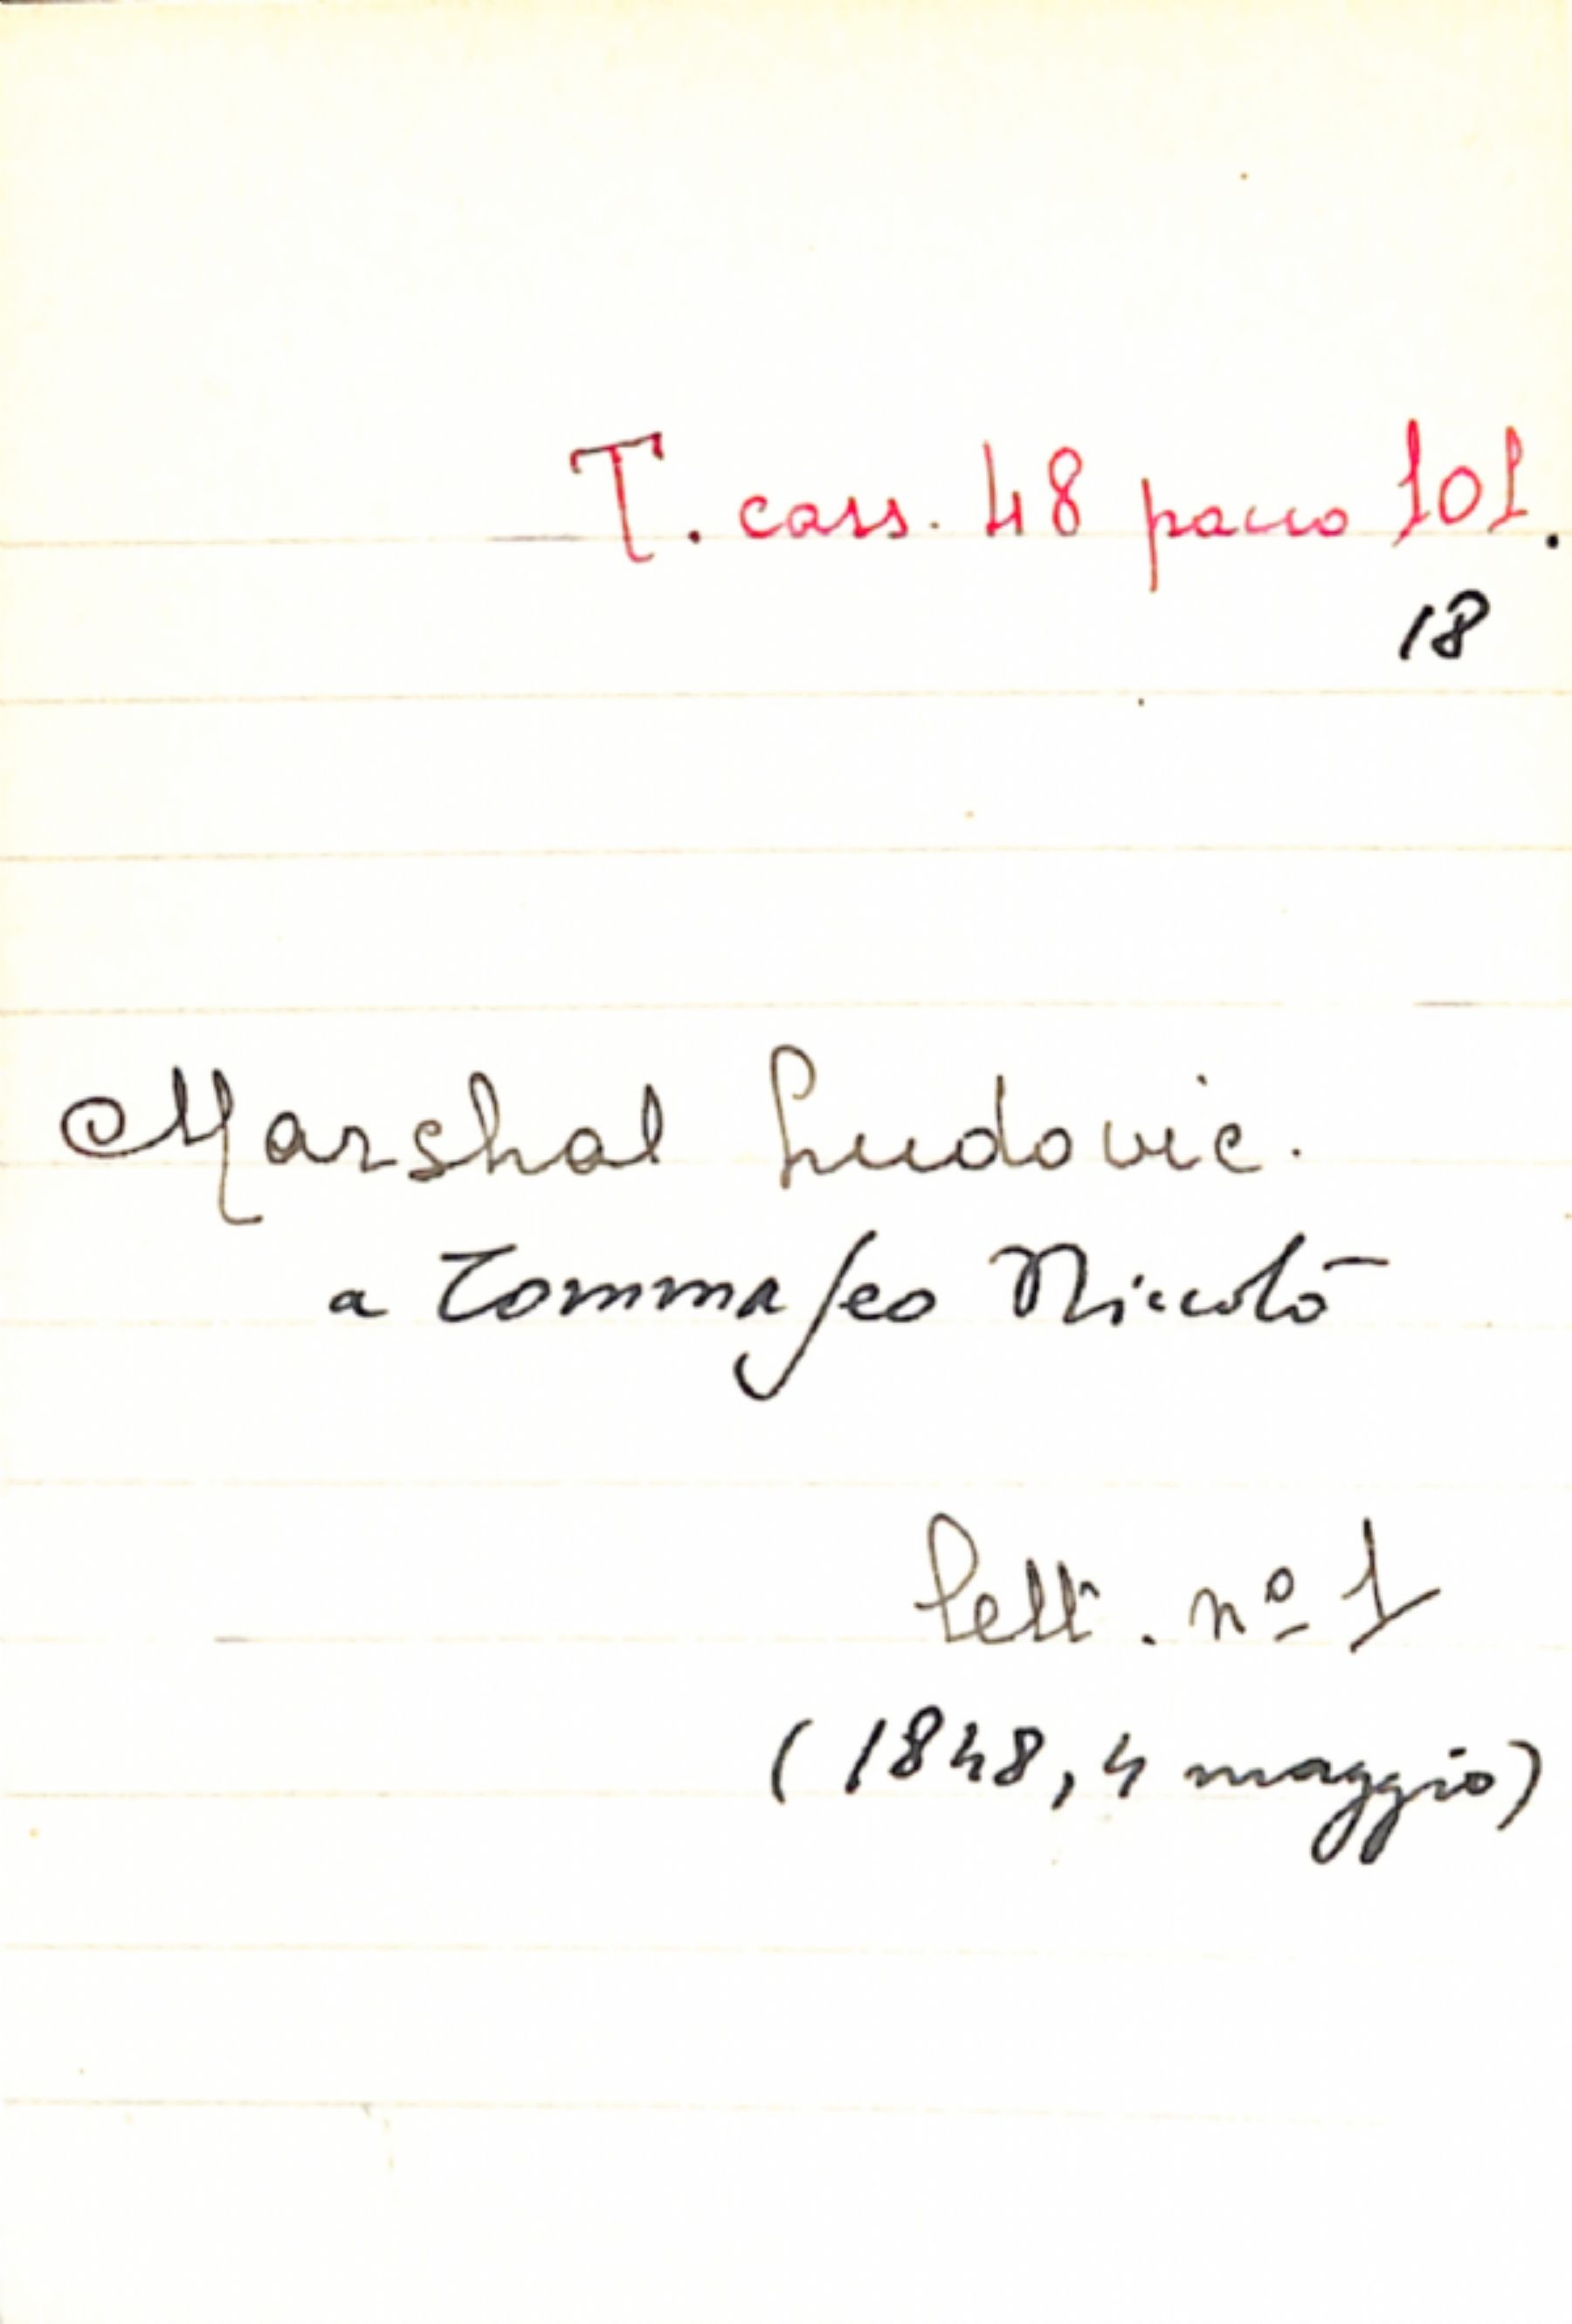 T. cass. 48 pacco 101.
18
Marshal Ludovic.
a Tommaseo Niccolò
Lett. nº 1
(1848, 4 maggio)